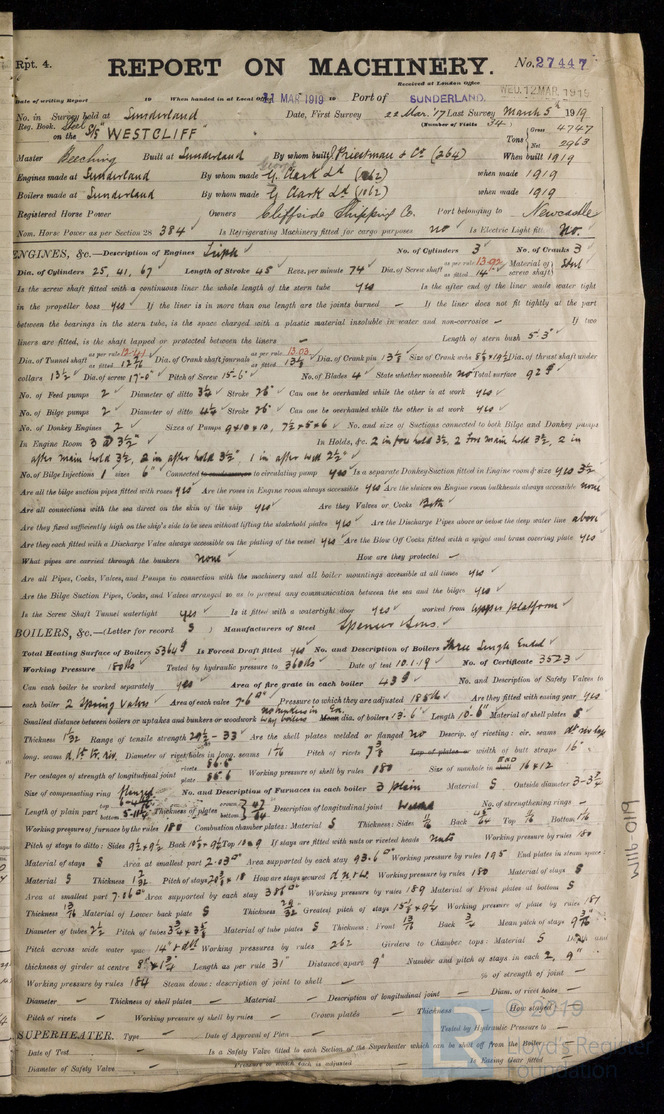 Rpt. 4. REPORT ON MACHINERY. No. 27447
Received at London Office WED. 12 MAR. 1919
Date of writing Report 19 When handed in at Local Office 11 MAR 1919 19 Port of SUNDERLAND.
No. in Survey held at Sunderland Date, First Survey 22 Mar. '17 Last Survey March 5th 1919
Reg. Book. (Number of Visits 34.)
on the Steel S/S "WESTCLIFF" Tons Gross 4747 Net 2963
Master Beeching Built at Sunderland By whom built J. Priestman & Co (264) When built 1919
Engines made at Sunderland By whom made George Clark Ld (1062) when made 1919
Boilers made at Sunderland By whom made G. Clark Ld (1062) when made 1919
Registered Horse Power Owners Cliffside Shipping Co. Port belonging to Newcastle
Nom. Horse Power as per Section 28 384 Is Refrigerating Machinery fitted for cargo purposes no Is Electric Light fitted No.
ENGINES, &c.—Description of Engines Triple No. of Cylinders 3 No. of Cranks 3
Dia. of Cylinders 25, 41, 67 Length of Stroke 45 Revs. per minute 74 Dia. of Screw shaft as per rule 13.92 as fitted 14 Material of screw shaft Steel
Is the screw shaft fitted with a continuous liner the whole length of the stern tube yes Is the after end of the liner made water tight
in the propeller boss yes If the liner is in more than one length are the joints burned — If the liner does not fit tightly at the part
between the bearings in the stern tube, is the space charged with a plastic material insoluble in water and non-corrosive — If two
liners are fitted, is the shaft lapped or protected between the liners — Length of stern bush 5-3"
Dia. of Tunnel shaft as per rule as fitted Dia. of Crank shaft journals as per rule 13.03 as fitted 13 1/8 Dia. of Crank pin 13 1/8 Size of Crank webs 8 5/8 x 19 1/2 Dia. of thrust shaft under
collars 13 1/2 Dia. of screw 17-0" Pitch of Screw 15-6" No. of Blades 4 State whether moveable no Total surface 92
No. of Feed pumps 2 Diameter of ditto 3 1/2 Stroke 26" Can one be overhauled while the other is at work yes
No. of Bilge pumps 2 Diameter of ditto 4 1/2 Stroke 26" Can one be overhauled while the other is at work yes
No. of Donkey Engines 2 Sizes of Pumps 9x10x10, 7 1/2 x 5 x 6 No. and size of Suctions connected to both Bilge and Donkey pumps
In Engine Room 3 @ 3 1/2" In Holds, &c. 2 in fore hold 3 1/2, 2 fore main hold 3 1/2, 2 in
after main hold 3 1/2, 2 in after hold 3 1/2, 1 in after well 2 1/2"
No. of Bilge Injections 1 sizes 6" Connected to condenser, or to circulating pump yes Is a separate Donkey Suction fitted in Engine room & size yes 3 1/2
Are all the bilge suction pipes fitted with roses yes Are the roses in Engine room always accessible yes Are the sluices on Engine room bulkheads always accessible none
Are all connections with the sea direct on the skin of the ship yes Are they Valves or Cocks Both
Are they fixed sufficiently high on the ship's side to be seen without lifting the stokehold plates yes Are the Discharge Pipes above or below the deep water line above
Are they each fitted with a Discharge Valve always accessible on the plating of the vessel yes Are the Blow Off Cocks fitted with a spigot and brass covering plate yes
What pipes are carried through the bunkers none How are they protected —
Are all Pipes, Cocks, Valves, and Pumps in connection with the machinery and all boiler mountings accessible at all times yes
Are the Bilge Suction Pipes, Cocks, and Valves arranged so as to prevent any communication between the sea and the bilges yes
Is the Screw Shaft Tunnel watertight yes Is it fitted with a watertight door yes worked from upper platform
BOILERS, &c.—(Letter for record S) Manufacturers of Steel Spencer & Sons.
Total Heating Surface of Boilers 5364 Is Forced Draft fitted yes No. and Description of Boilers Three Single Ended
Working Pressure 180 lbs Tested by hydraulic pressure to 360 lbs Date of test 10.1.19 No. of Certificate 3523
Can each boiler be worked separately yes Area of fire grate in each boiler 43 No. and Description of Safety Valves to
each boiler 2 Spring Valves Area of each valve Pressure to which they are adjusted 185 lb Are they fitted with easing gear yes
Smallest distance between boilers or uptakes and bunkers or woodwork Mean dia. of boilers 13-6" Length 10'-6" Material of shell plates S
Thickness 1 1/32 Range of tensile strength 29 1/2 - 33 Are the shell plates welded or flanged no Descrip. of riveting: cir. seams
long. seams Diameter of rivet holes in long. seams Pitch of rivets Lap of plates or width of butt straps 16"
Per centages of strength of longitudinal joint rivets 86.5 plate 85.6 Working pressure of shell by rules 180 Size of manhole in shell END 16 x 12
Size of compensating ring flanged No. and Description of Furnaces in each boiler 3 plain Material S Outside diameter
Length of plain part top bottom Thickness of plates crown bottom Description of longitudinal joint Weld No. of strengthening rings —
Working pressure of furnace by the rules 180 Combustion chamber plates: Material S Thickness: Sides Back Top Bottom
Pitch of stays to ditto: Sides Back Top If stays are fitted with nuts or riveted heads nuts Working pressure by rules 180
Material of stays S Area at smallest part 2.03 Area supported by each stay 93.6 Working pressure by rules 195 End plates in steam space
Material S Thickness Pitch of stays How are stays secured Working pressure by rules 180 Material of stays S
Area at smallest part Area supported by each stay Working pressure by rules 189 Material of Front plates at bottom S
Thickness Material of Lower back plate S Thickness Greatest pitch of stays Working pressure of plate by rules 187
Diameter of tubes 2 1/2 Pitch of tubes Material of tube plates S Thickness: Front Back Mean pitch of stays
Pitch across wide water spaces 14" Working pressures by rules 262 Girders to Chamber tops: Material S Depth and
thickness of girder at centre Length as per rule 31" Distance apart 9" Number and pitch of stays in each 2, 9"
Working pressure by rules 184 Steam dome: description of joint to shell — % of strength of joint —
Diameter — Thickness of shell plates — Material — Description of longitudinal joint — Diam. of rivet holes —
Pitch of rivets — Working pressure of shell by rules — Crown plates — Thickness — How stayed —
SUPERHEATER. Type — Date of Approval of Plan — Tested by Hydraulic Pressure to —
Date of Test — Is a Safety Valve fitted to each Section of the Superheater which can be shut off from the Boiler —
Diameter of Safety Valve — Pressure to which each is adjusted — Is Easing Gear fitted —
W116-019
© 2019
Lloyd's Register
Foundation